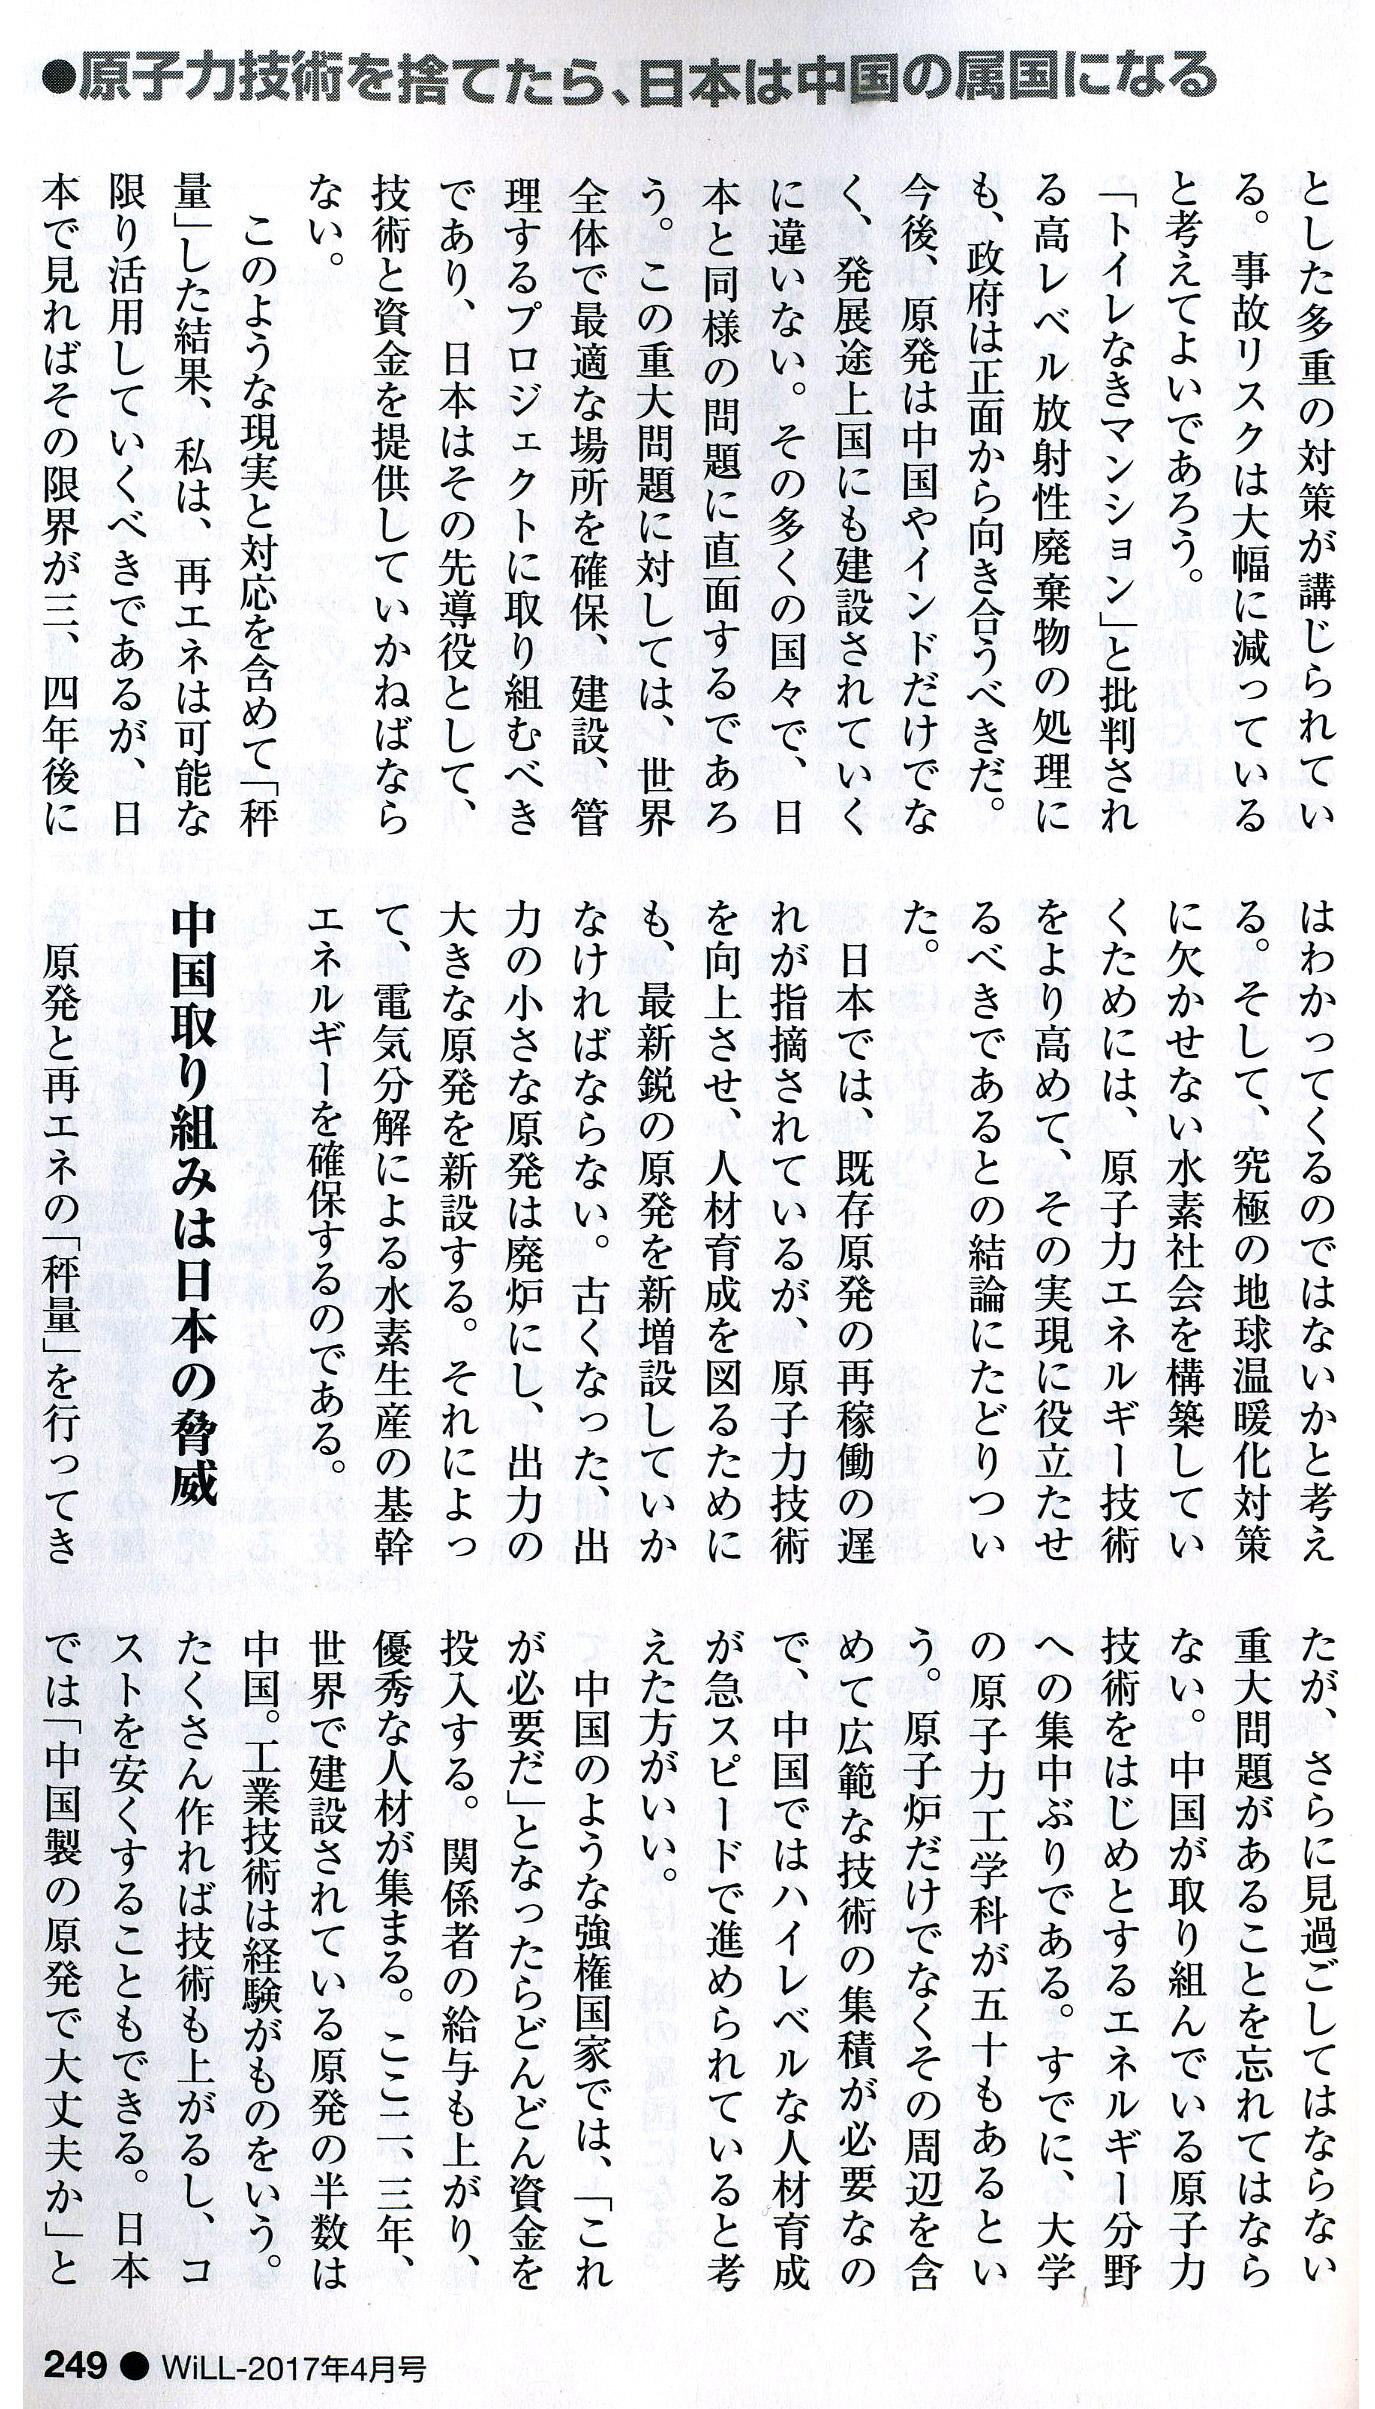 ●原子力技術を捨てたら、日本は中国の属国になる
とした多重の対策が講じられてい
る。事故リスクは大幅に減っている
と考えてよいであろう。
「トイレなきマンション」と批判され
る高レベル放射性廃棄物の処理に
も、政府は正面から向き合うべきだ。
今後、原発は中国やインドだけでな
く、発展途上国にも建設されていく
に違いない。その多くの国々で、日
本と同様の問題に直面するであろ
う。この重大問題に対しては、世界
全体で最適な場所を確保、建設、管
理するプロジェクトに取り組むべき
であり、日本はその先導役として、
技術と資金を提供していかねばなら
ない。
このような現実と対応を含めて「秤
量」した結果、私は、再エネは可能な
限り活用していくべきであるが、日
本で見ればその限界が三、四年後に
はわかってくるのではないかと考え
る。そして、究極の地球温暖化対策
に欠かせない水素社会を構築してい
くためには、原子力エネルギー技術
をより高めて、その実現に役立たせ
るべきであるとの結論にたどりつい
た。
日本では、既存原発の再稼働の遅
れが指摘されているが、原子力技術
を向上させ、人材育成を図るために
も、最新鋭の原発を新増設していか
なければならない。古くなった、出
力の小さな原発は廃炉にし、出力の
大きな原発を新設する。それによっ
て、電気分解による水素生産の基幹
エネルギーを確保するのである。
中国取り組みは日本の脅威
原発と再エネの「秤量」を行ってき
たが、さらに見過ごしてはならない
重大問題があることを忘れてはなら
ない。中国が取り組んでいる原子力
技術をはじめとするエネルギー分野
への集中ぶりである。すでに、大学
の原子力工学科が五十もあるとい
う。原子炉だけでなくその周辺を含
めて広範な技術の集積が必要なの
で、中国ではハイレベルな人材育成
が急スピードで進められていると考
えた方がいい。
中国のような強権国家では、「これ
が必要だ」となったらどんどん資金を
投入する。関係者の給与も上がり、
優秀な人材が集まる。ここ二、三年、
世界で建設されている原発の半数は
中国。工業技術は経験がものをいう。
たくさん作れば技術も上がるし、コ
ストを安くすることもできる。日本
では「中国製の原発で大丈夫か」と
249 ● WiLL-2017年4月号